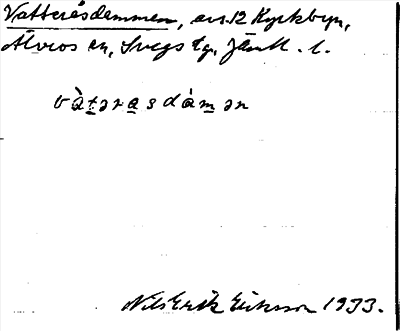 Vatteråsdammen, avs. 12 Kyrkbyn,
Älvros sn, Svegs tg, Jämtl. l.
vàt̲əra̲sdàm̲ən
Nils Erik Eriksson 1933.